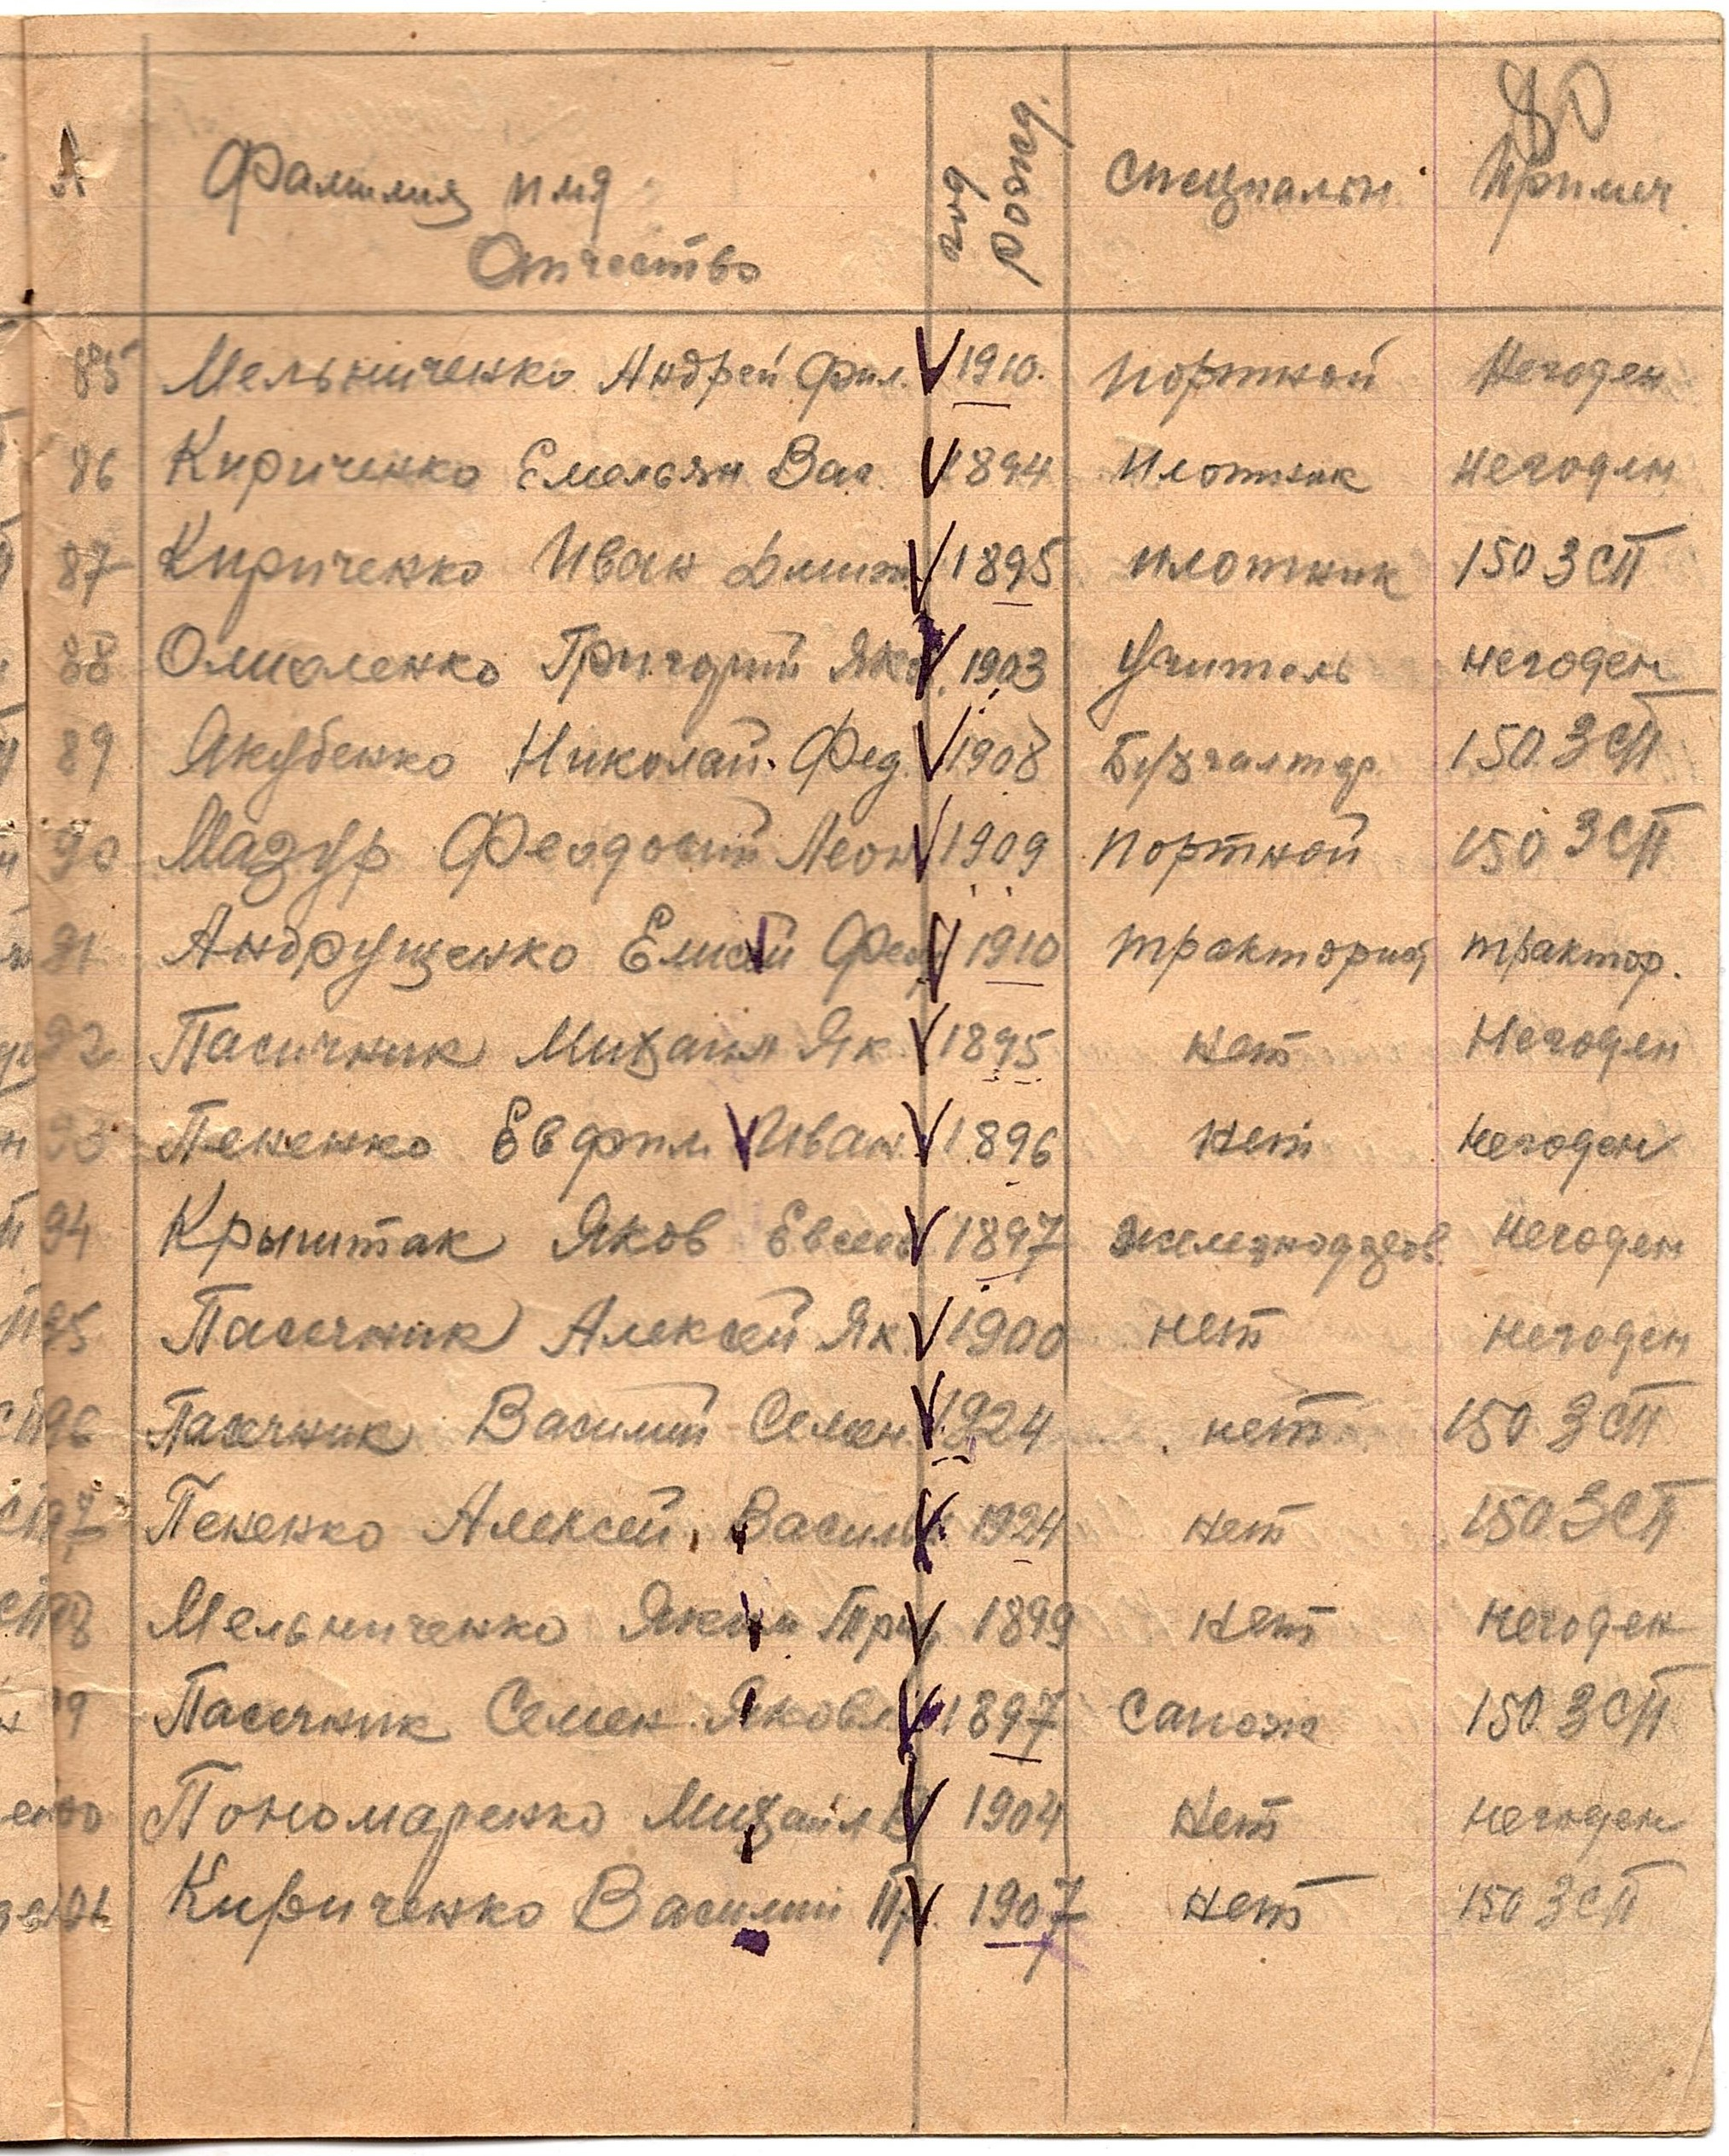 Фамилия имя Отчество год рожд. Специальн. Примеч
85 Мельниченко Андрей Фил. 1910. Портной Негоден
86 Кириченко Емельян Вас. 1894 Плотник Негоден
87 Кириченко Иван Дмит 1895 плотник 150 ЗСП
88 Омеленко Григорий Яко 1903 Учитель негоден
89 Якубенко Николай Фед. 1908 Бухгалтер 150 ЗСП
90 Мазур Феодосий Леон 1909 Портной 150 ЗСП
91 Андрущенко Елисей Фед 1910 тракторист трактор.
92 Пасичник Михаил Як. 1895 нет Негоден
93 Пененко Евфил. Иван. 1896 Нет Негоден
94 Крыштак Яков Евсеев 1897 Негоден
95 Пасечник Алексей Як. 1900 нет негоден
96 Пасечник Василий Семен. 1924 нет 150 ЗСП
97 Пененко Алексей Василь 1924 нет 150 ЗСП
98 Мельниченко Яким Гри 1899 нет Негоден
99 Пасечник Семен Яковл 1897 Сапож 150 ЗСП
100 Пономаренко Михаил В 1904 Нет негоден
101 Кириченко Василий Пр 1907 Нет 150 ЗСП